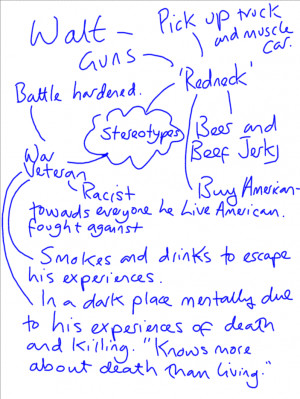 Walt -
Pick up truck
and muscle
car.
Guns
'Redneck'
Battle hardened.
Stereotypes
Beer and
Beef Jerky
War
Veteran
Racist
Buy American-
towards everyone he Live American.
fought against
Smokes and drinks to escape
his experiences.
In a dark place mentally due
to his experiences of death
and killing. "Knows more
about death than living."